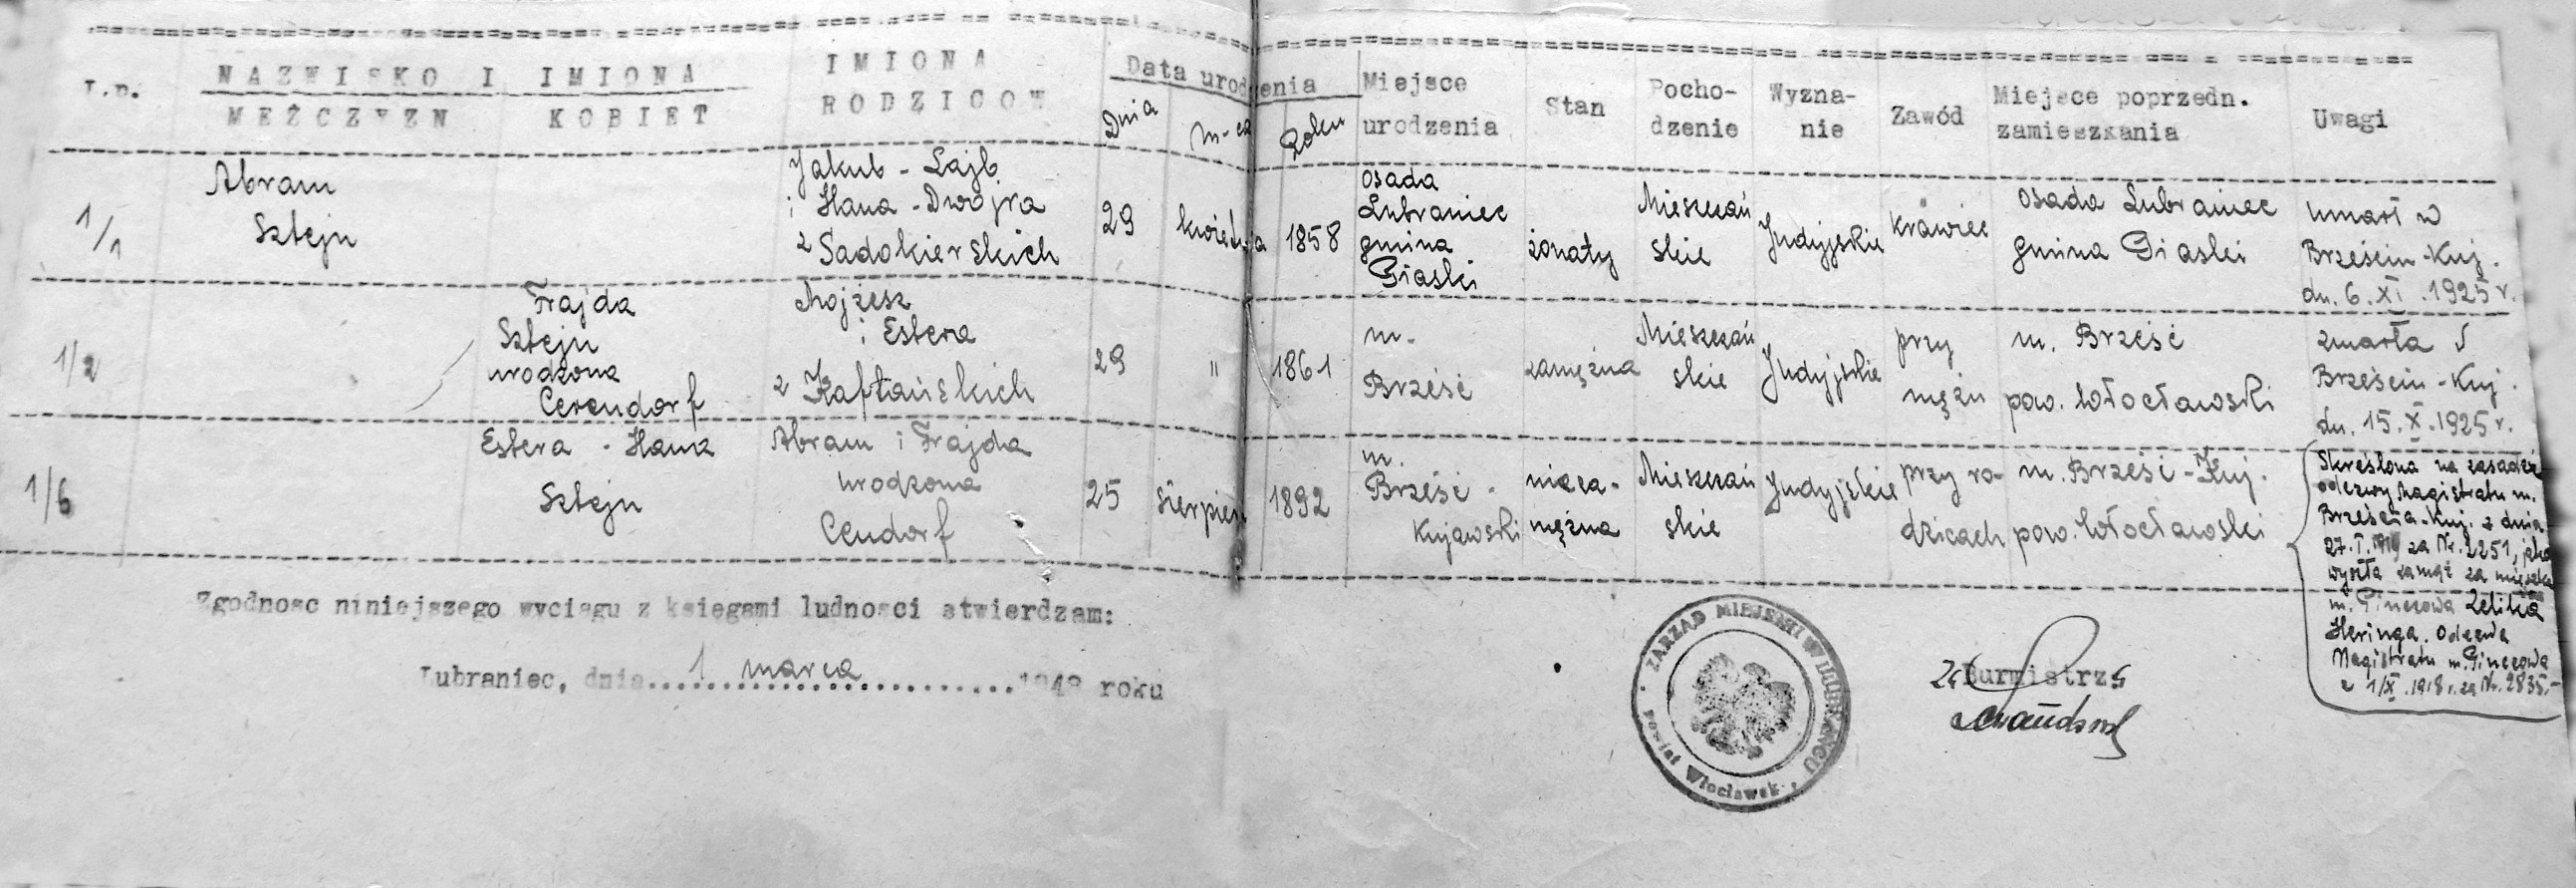 L.p.
NAZWISKO I IMIONA
MEŻCZYZN KOBIET
IMIONA
RODZICOW
Data urodzenia
Dnia m-ca Roku
Miejsce
urodzenia
Stan
Pocho-
dzenie
Wyzna-
nie
Zawód
Miejsce poprzedn.
zamieszkania
Uwagi
1/1
Abram
Sztejn
Jakub - Lajb
i Hana - Dwojra
z Sadokierskich
29
kwietnia
1858
osada
Lubraniec
gmina
Piaski
żonaty
Mieszczań
skie
Judyjskie
krawiec
osada Lubraniec
gmina Piaski
umarł w
Brześciu-Kuj.
dn. 6.XI.1925 r.
1/2
Frajda
Sztejn
urodzona
Cerendorf
Mojżesz
i Estera
z Kaftańskich
29
"
1861
m.
Brześć
zamężna
Mieszczań
skie
Judyjskie
przy
mężu
m. Brześć
pow. Włocławski
zmarła w
Brześciu-Kuj.
dn. 15.X.1925 r.
1/6
Estera - Hana
Sztejn
Abram i Frajda
urodzona
Cendorf
25
sierpień
1892
m.
Brześć -
Kujawski
nieza-
mężna
Mieszczań
skie
Judyjskie
przy ro-
dzicach
m. Brześć-Kuj.
pow. Włocławski
Skreślona na zasadzie
odezwy Magistratu m.
Brześcia-Kuj. z dnia
27.I.1919 za Nr. 2251, jako
wyszła zamąż za
m. Pinczowa
Heringa. Odezwa
Magistratu m. Pinczowa
z 1/X.1918 r. za Nr. 2835.-
Zgodnosc niniejszego wyciagu z ksiegami ludnosci stwierdzam:
Lubraniec, dnia 1 marca 1948 roku
ZARZĄD MIEJSKI W LUBRAŃCU
Powiat Włocławek
Burmistrz